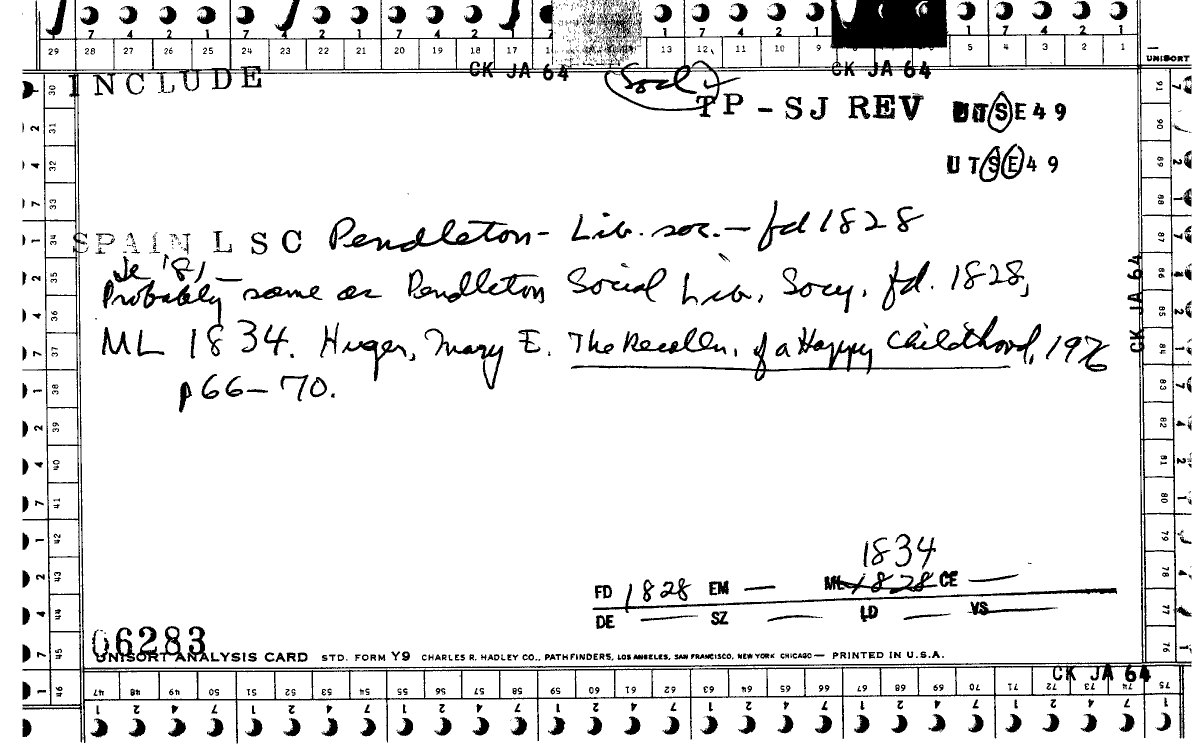 7 4 2 1 7 4 2 1 7 4 2 1 7 2 1 7 4 2 1
29 28 27 26 25 24 23 22 21 20 19 18 17 13 12 11 10 9 5 4 3 2 1
UNISORT
CK JA 64 CK JA 64
INCLUDE
Socl
TP - SJ REV UTSE49
UTSE49
SPAIN LSC Pendleton - Lib. soc. - fd 1828
Je '81 -
Probably same as Pendleton Social Lib. Socy. fd. 1828,
ML 1834. Huger, Mary E. The Recolln. of a Happy Childhood, 1976
p66-70.
CK JA 64
1834
FD 1828 EM — ML 1828 CE —
DE — SZ — LD — VS —
06283
UNISORT ANALYSIS CARD STD. FORM Y9 CHARLES R. HADLEY CO., PATHFINDERS, LOS ANGELES, SAN FRANCISCO, NEW YORK CHICAGO — PRINTED IN U.S.A.
CK JA 64
30 31 32 33 34 35 36 37 38 39 40 41 42 43 44 45 46
91 90 89 88 87 86 85 84 83 82 81 80 79 78 77 76
47 48 49 50 51 52 53 54 55 56 57 58 59 60 61 62 63 64 65 66 67 68 69 70 71 72 73 74 75
1 2 4 7 1 2 4 7 1 2 4 7 1 2 4 7 1 2 4 7 1 2 4 7 1 2 4 7 1